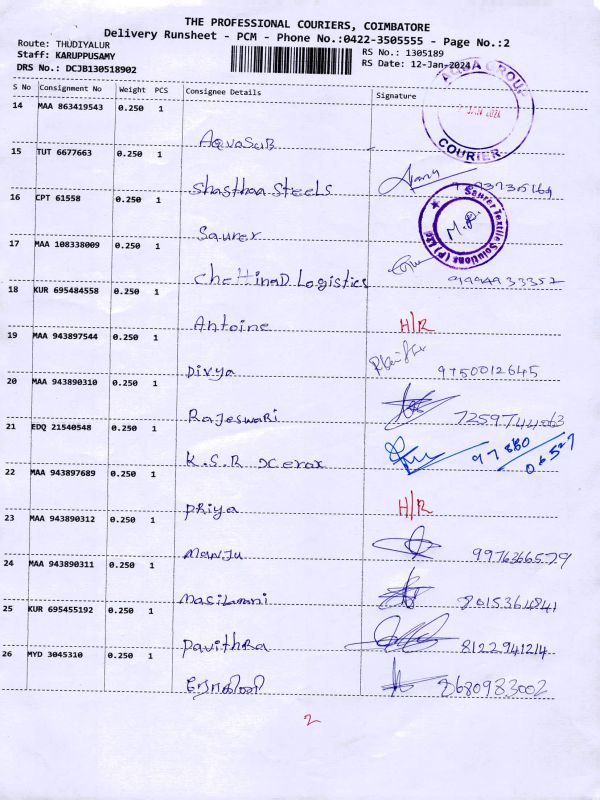 THE PROFESSIONAL COURIERS, COIMBATORE
Delivery Runsheet - PCM - Phone No.:0422-3505555 - Page No.:2
Route: THUDIYALUR
RS No.: 1305189
Staff: KARUPPUSAMY
RS Date: 12-Jan-2024
DRS No.: DCJB130518902
S No Consignment No Weight PCS Consignee Details Signature
14 MAA 863419543 0.250 1
AquaSub
AQUA GROUP
COURIER
15 TUT 6677663 0.250 1
Shasthaa Steels
16 CPT 61558 0.250 1
Saurer
Saurer Textile Solutions (P) Ltd
17 MAA 108338009 0.250 1
Chettinad Logistics 9199493 3352
18 KUR 695484558 0.250 1
Antoine H/R
19 MAA 943897544 0.250 1
Divya 9750012645
20 MAA 943890310 0.250 1
Rajeswari
21 EDQ 21540548 0.250 1
K.S.R Xerox 97880 06527
22 MAA 943897689 0.250 1
Priya H/R
23 MAA 943890312 0.250 1
Manju 9976366579
24 MAA 943890311 0.250 1
Masilamani 8015364841
25 KUR 695455192 0.250 1
Pavithra 8122941214
26 MYD 3045310 0.250 1
8680983002
2